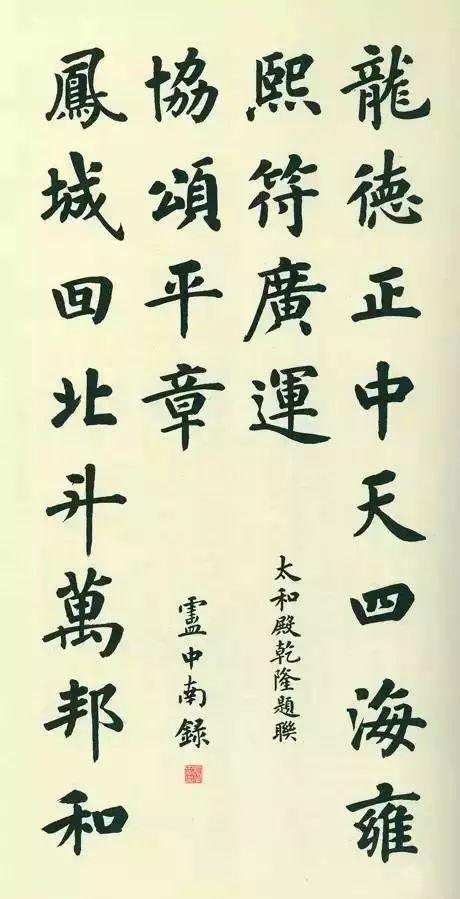 龍德正中天四海雍
熙符廣運
鳳城囬北斗萬邦和
協頌平章
太和殿乾隆題聯
盧中南録